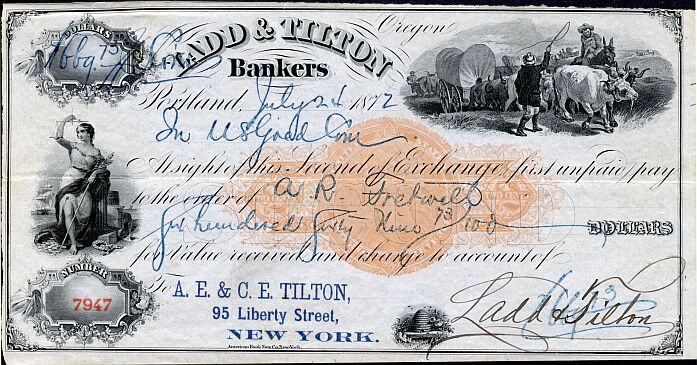 DOLLARS
LADD & TILTON
Oregon
Bankers
Portland, July 24 1872
In US Gold Coin
At sight of this Second of Exchange, first unpaid, pay
to the order of A. R. Fretwell
Six hundred Sixty Nine 73/100 DOLLARS
for Value received and charge to account of
NUMBER
7947
To A. E. & C. E. TILTON,
95 Liberty Street,
NEW YORK.
Ladd & Tilton
American Bank Note Co. New York.